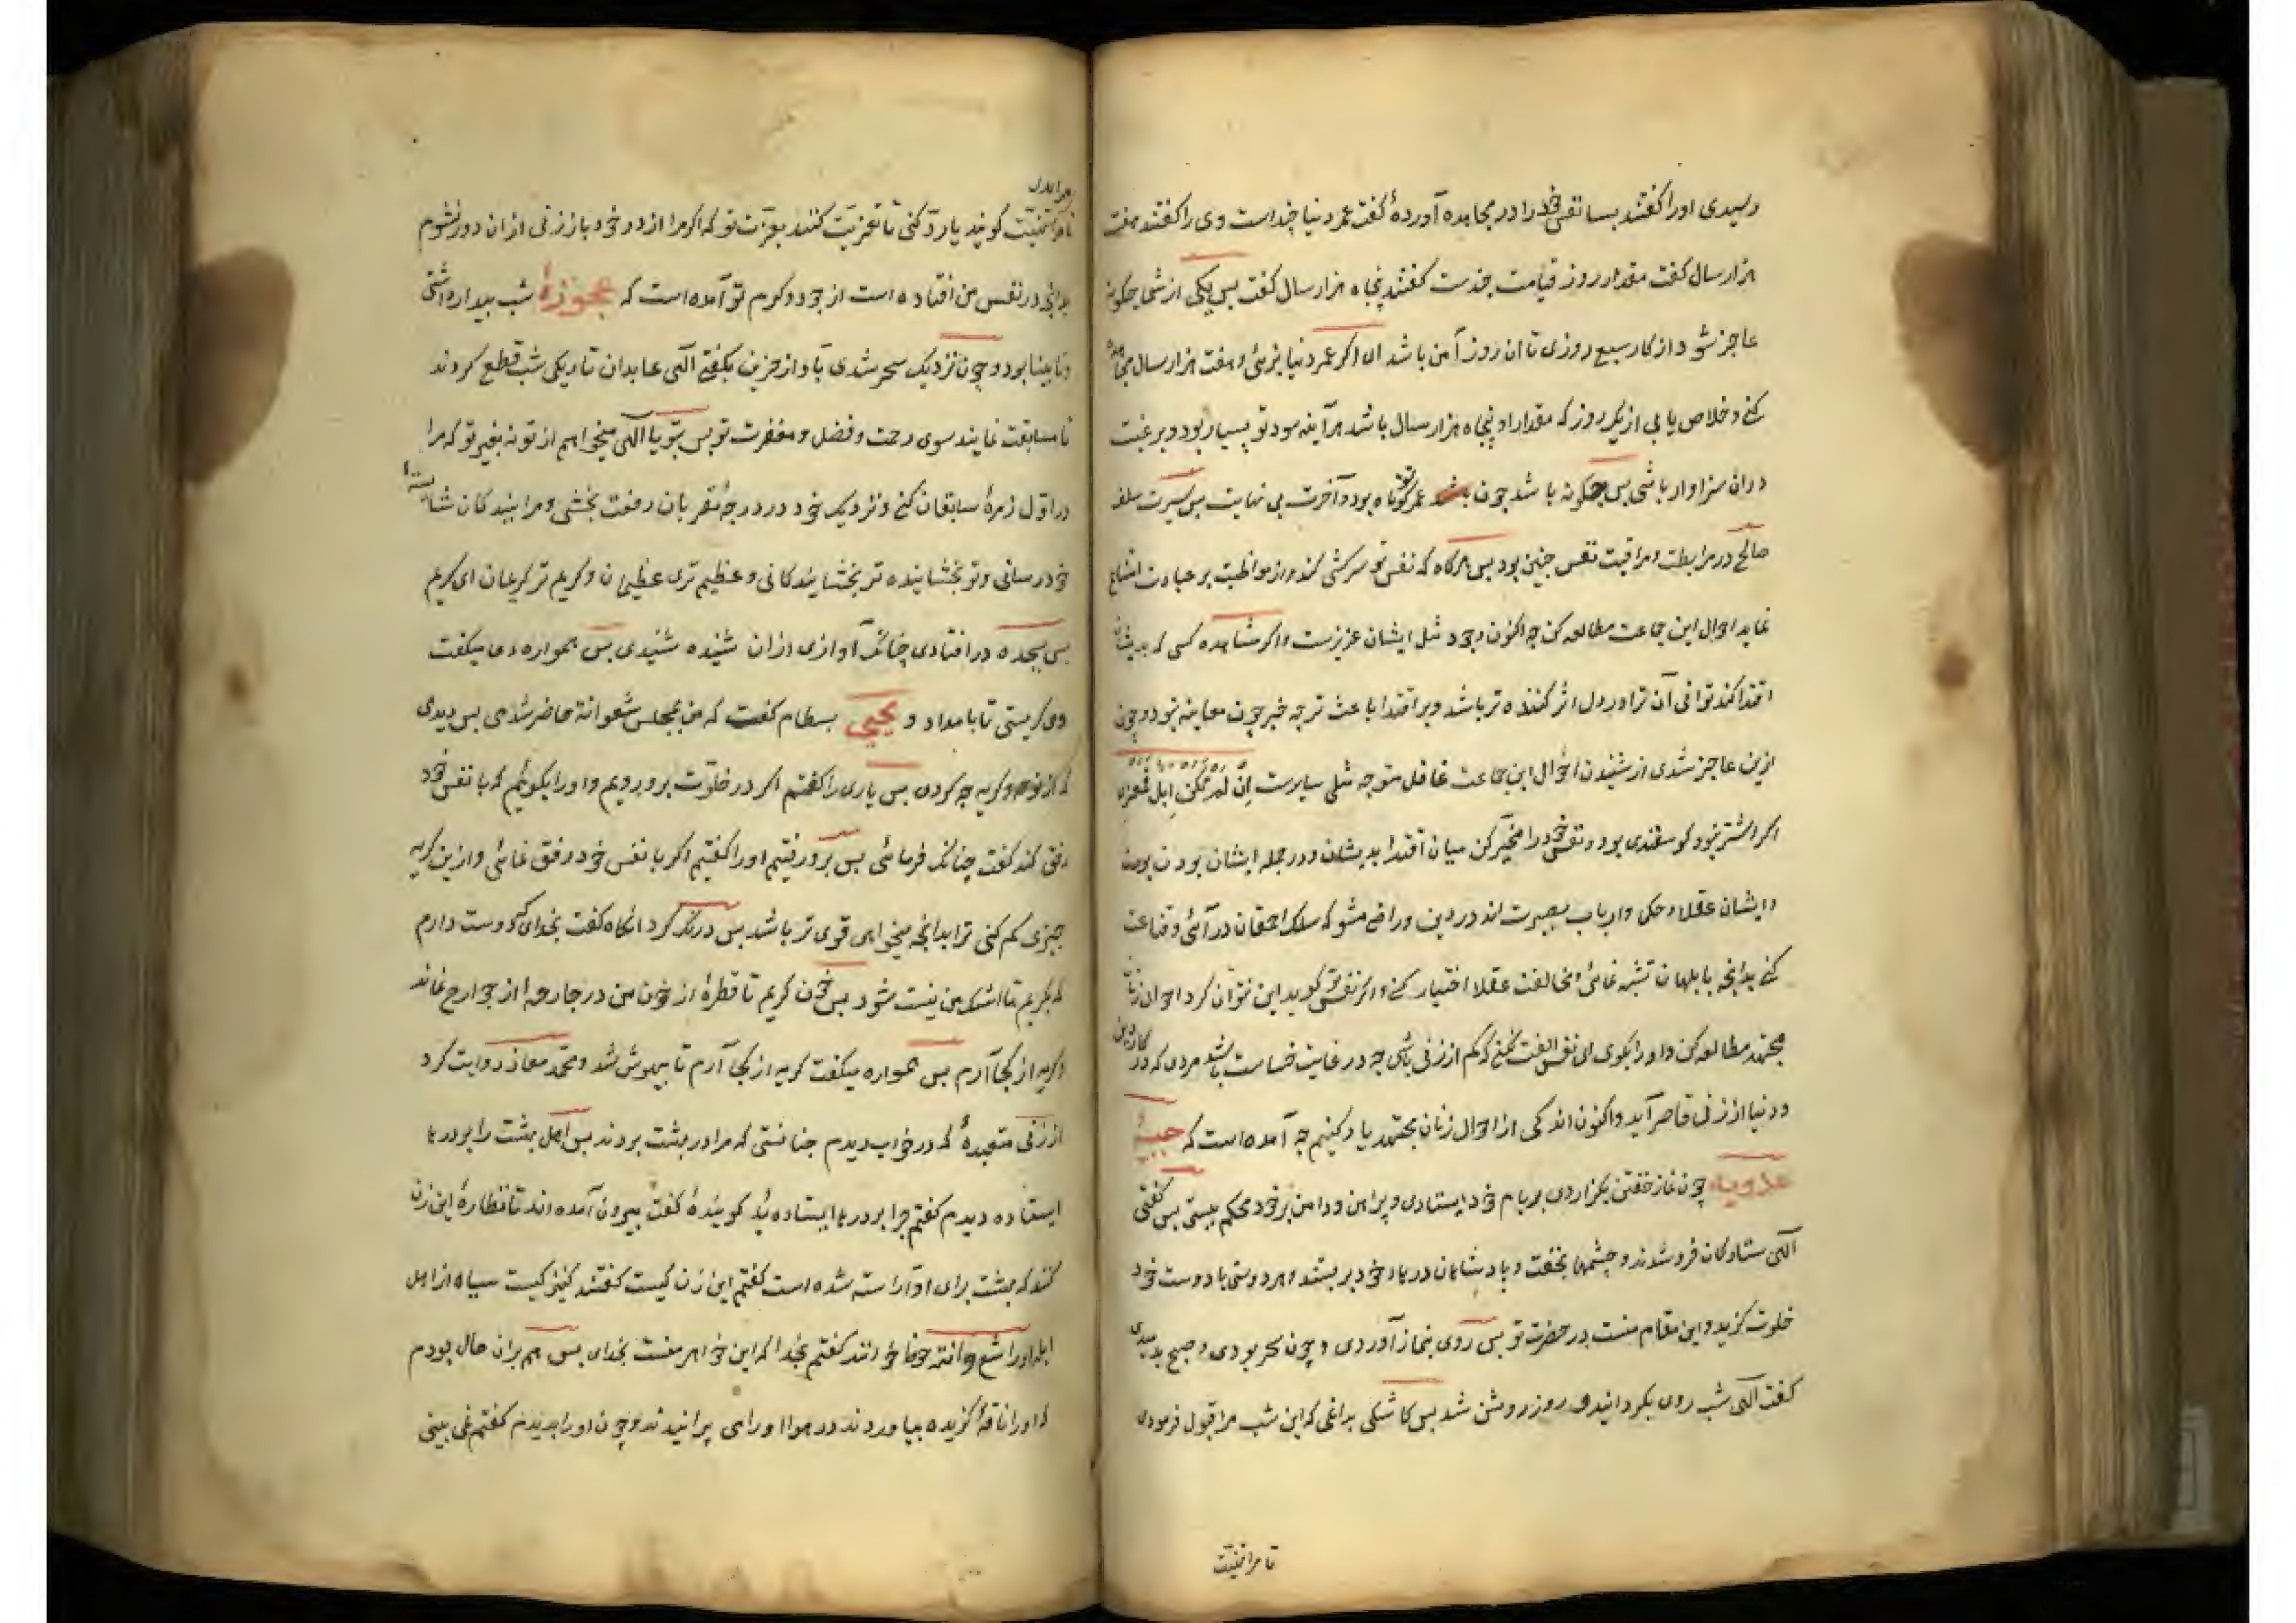 رسیدی اورا گفتند بسا نفس خود را در مجاهده آوردهٔ گفت عمر دنیا چنداست وی را گفتند هفت
هزار سال گفت مقدار روز قیامت چندست گفتند پنجاه هزار سال گفت بس یکی از شما چگونه
عاجز شود از کار سبع روزی تا ان روز آمن باشد ای اگر عمر دنیا بزیئی و هفت هزار سال مجاهده
کنی و خلاص یابی از یک روز که مقدار او پنجاه هزار سال باشد هرآینه سود تو بسیار بود و برغبت
دران سزاوار باشی بس چگونه باشد چون عمر تو کوتاه بود و آخرت بی نهایت بس سیرت سلف
صالح در مرابطت و مراقبت نفس چنین بود بس هرگاه که نفس تو سرکشی کند و از مواظبت بر عبادت امتناع
نماید احوال این جماعت مطالعه کن چه اکنون وجود مثل ایشان عزیزست و اگر مشاهده کسی که بدیشان
اقتدا کند توانی آن ترا در دل اثر کننده تر باشد و بر اقتدا باعث تر چه خبر چون معاینه نبود و چون
ازین عاجز شدی از شنیدن احوال این جماعت غافل مشو چه مثلی سایرست اِن لم تکن اِبل فمعزی
اگر اشتر نبود گوسفندی بود و نفس خود را مخیّر کن میان اقتدا بدیشان و در جمله ایشان بودن
و ایشان عقلا و حکما و ارباب بصیرت اند در دین و راضی مشو که سلک احمقان در آئی و قناعت
کنی بدانچه بابلهان تشبه نمائی و مخالفت عقلا اختیار کنی و اگر نفس تو گوید این نتوان کرد احوال زنان
مجتهد مطالعه کن و اورا بگوی ای نفس انفت نکنی که کم از زنی باشی چه در غایت خساست باشد مردی که در کار دین
و دنیا از زنی قاصر آید و اکنون اندکی از احوال زنان مجتهد یاد کنیم چه آمده است که حبیبهٔ
عدویه چون نماز خفتن بگزاردی بر بام خود ایستادی و پیراهن و دامن بر خود محکم ببستی بس گفتی
آلهی ستارگان فرو شدند و چشمها بخفت و پادشاهان درهاء خود بر بستند و هر دوستی با دوست خود
خلوت گزید و این مقام منست در حضرت تو بس روی بنماز آوردی و چون سحر بودی و صبح بدمیدی
گفت آلهی شب روی بگردانید و روز روشن شد بس کاشکی بدانمی که این شب مرا قبول فرمودی
تا مرا تهنیت
تا مرا تهنیت گویند یا رد کنی تا تعزیت کنند بعزّت تو که اگر مرا از در خود باز زنی از ان دور نشوم
بدانچ در نفس من افتاده است از جود و کرم تو آمده است که عجوزهٔ شب بیدار داشتی
و نابینا بود و چون نزدیک سحر شدی بآواز حزین بگفتی آلهی عابدان تاریکی شب قطع کردند
تا مسابقت نمایند سوی رحمت و فضل و مغفرت تو بس بتو یا آلهی میخواهم از تو نه بغیر تو که مرا
در اوّل زمرهٔ سابقان کنی و نزدیک خود در درجهٔ مقربان رفعت بخشی و مرا ببندگان شایستهٔ
خود رسانی و تو بخشاینده تر بخشایندگانی و عظیم تری عظیمان و کریم تر کریمان ای کریم
بس بسجده در افتادی چنانک آوازی ازان شنیده شنیدی بس همواره دعا میگفت
و می گریستی تا بامداد و یحیی بسطام گفت که من بمجلس شعوانة حاضر شدمی بس دیدی
که از نوحه و گریه چه کردی بس یاری را گفتم اگر در خلوت برو رویم و اورا بگوئیم که با نفس خود
رفق کند گفت چنانک فرمائی بس برو رفتیم اورا گفتیم اگر با نفس خود رفق نمائی و ازین گریه
چیزی کم کنی ترا بدانچه میخواهی قوی تر باشد بس درنگ کرد آنگاه گفت بخدای که دوست دارم
که بگریم تا اشک من نیست شود بس خون گریم تا قطرهٔ از خون من در جارحهٔ از جوارح نماند
و گریه از کجا آرم بس همواره میگفت گریه از کجا آرم تا بیهوش شد و محمّد معاذ روایت کرد
از زنی متعبدهٔ که در خواب دیدم چنانستی که مرا در بهشت بردند بس اهل بهشت را بر درها
ایستاده دیدم گفتم چرا بر درها ایستاده اید گویندهٔ گفت بیرون آمده اند تا نظارهٔ این زن
کنند که بهشت برای او آراسته شده است گفتم این زن کیست گفتند کنیزکیست سیاه از اهل
ابله اورا شعوانة خوانند گفتم بخدا که این خواهر منست بخدای بس هم بران حال بودم
که اورا ناقهٔ گزیده بیاوردند در هوا اورا می پرانیدند و چون اورا بدیدم گفتم نمی بینی